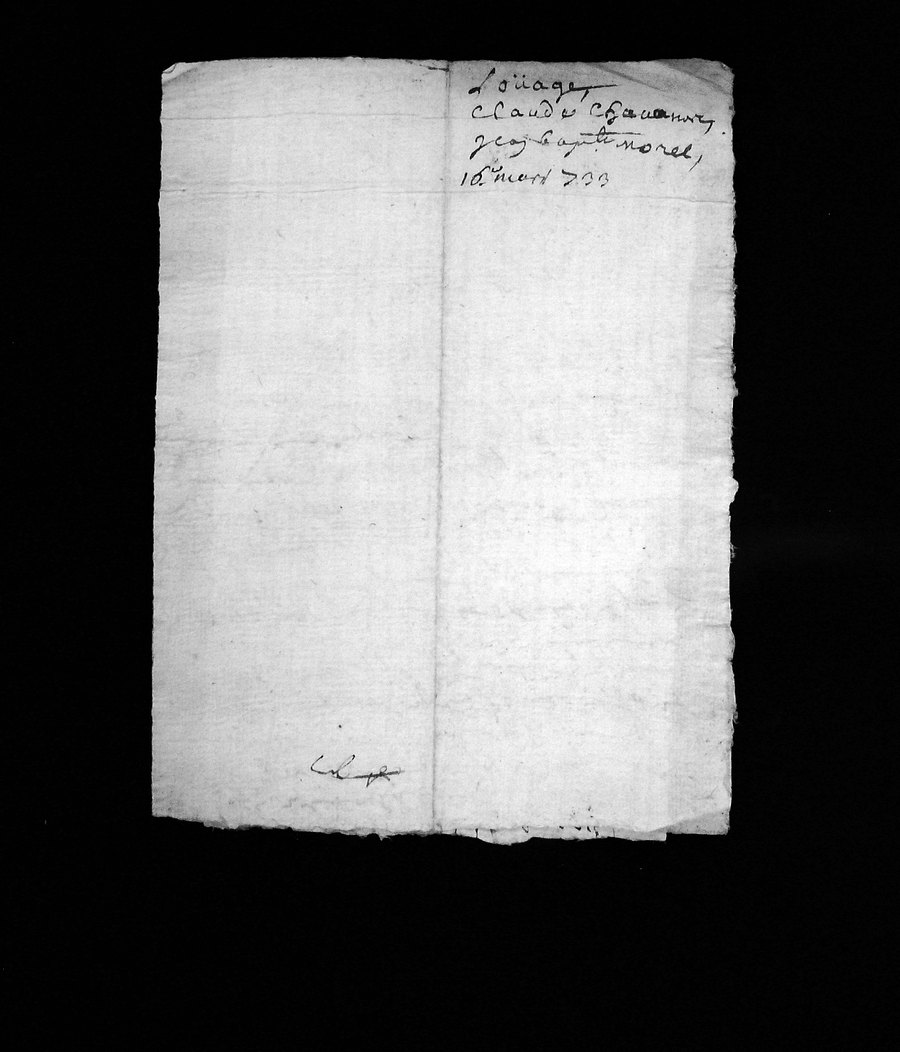 Loüage,
Claude Chauanne,
Jean baptte morel,
16e mars 733